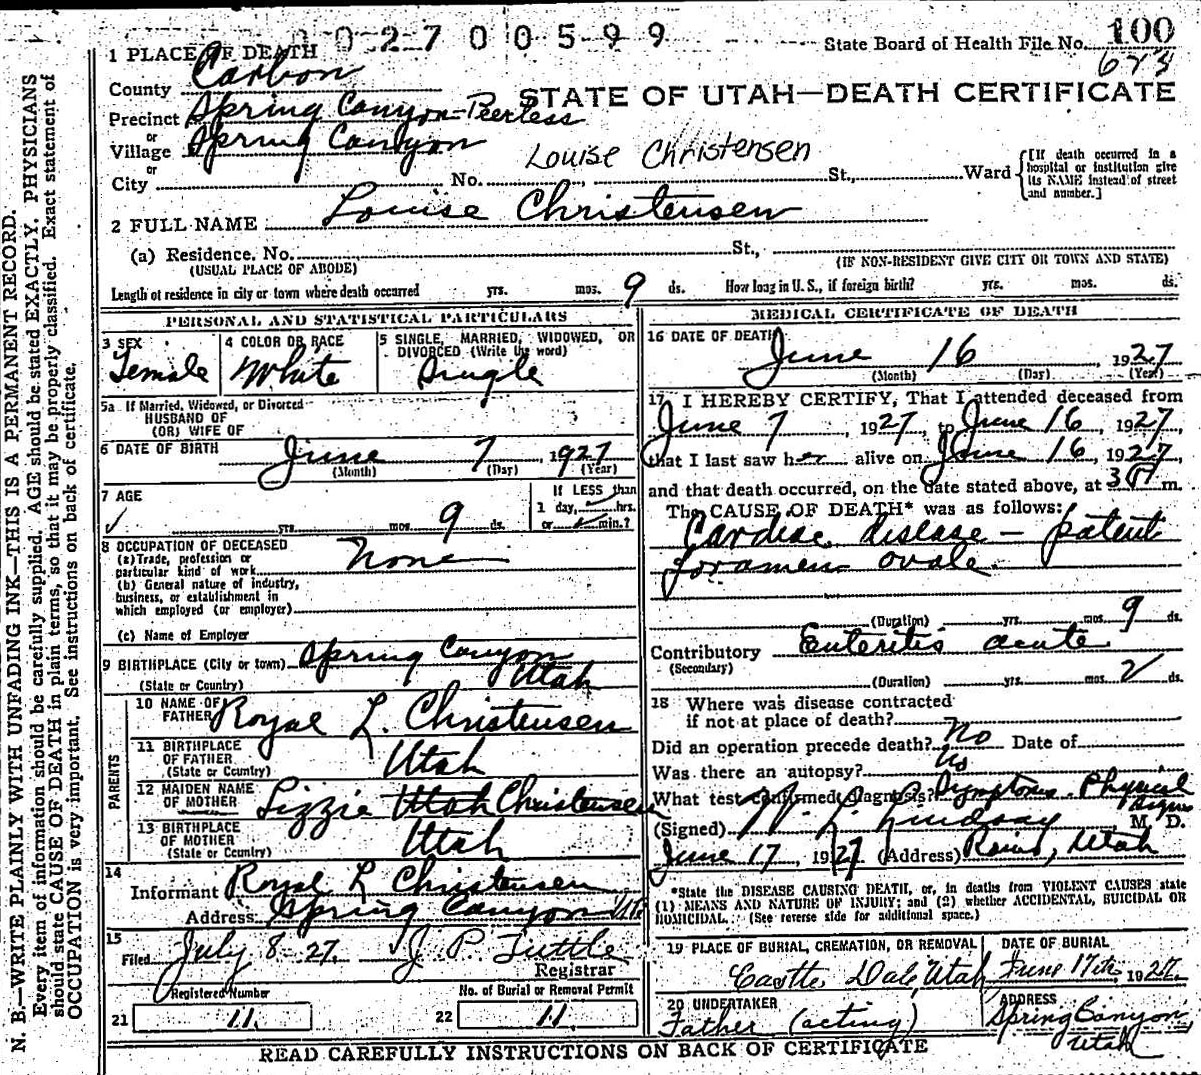 02700599
State Board of Health File No. 100
673
1 PLACE OF DEATH
County Carbon
STATE OF UTAH—DEATH CERTIFICATE
Precinct Spring Canyon-Peerless
or
Village Spring Canyon
or
Louise Christensen
City No. St., Ward
[If death occurred in a
hospital or institution give
its NAME instead of street
and number.]
2 FULL NAME Louise Christensen
(a) Residence. No. St.,
(USUAL PLACE OF ABODE)
(IF NON-RESIDENT GIVE CITY OR TOWN AND STATE)
Length of residence in city or town where death occurred yrs. mos. 9 ds. How long in U. S., if foreign birth? yrs. mos. ds.
PERSONAL AND STATISTICAL PARTICULARS
3 SEX
Female
4 COLOR OR RACE
White
5 SINGLE, MARRIED, WIDOWED, OR
DIVORCED (Write the word)
Single
5a If Married, Widowed, or Divorced
HUSBAND OF
(OR) WIFE OF
6 DATE OF BIRTH June 7, 1927
(Month) (Day) (Year)
7 AGE
yrs. mos. 9 ds.
If LESS than
1 day, hrs.
or min.?
8 OCCUPATION OF DECEASED
None
(a) Trade, profession or
particular kind of work
(b) General nature of industry,
business, or establishment in
which employed (or employer)
(c) Name of Employer
9 BIRTHPLACE (City or town) Spring Canyon
(State or Country) Utah
PARENTS
10 NAME OF
FATHER Royal L. Christensen
11 BIRTHPLACE
OF FATHER
(State or Country) Utah
12 MAIDEN NAME
OF MOTHER Lizzie Utah Christensen
13 BIRTHPLACE
OF MOTHER
(State or Country) Utah
14
Informant Royal L Christensen
Address Spring Canyon Ut.
15
Filed July 8-27. J. P. Tuttle
Registrar
Registered Number
21 11.
No. of Burial or Removal Permit
22 11.
MEDICAL CERTIFICATE OF DEATH
16 DATE OF DEATH
June 16, 1927
(Month) (Day) (Year)
17 I HEREBY CERTIFY, That I attended deceased from
June 7, 1927, to June 16, 1927,
that I last saw her alive on June 16, 1927
and that death occurred, on the date stated above, at 3 P m.
The CAUSE OF DEATH* was as follows:
Cardiac disease — patent
foramen ovale
(Duration) yrs. mos. 9 ds.
Contributory Enteritis acute
(Secondary)
(Duration) yrs. mos. 2 ds.
18 Where was disease contracted
if not at place of death?
Did an operation precede death? No Date of
Was there an autopsy? No
What test confirmed diagnosis? Symptoms - Physical
signs
(Signed) L. Lindsay M. D.
June 17, 1927 (Address) Rains, Utah
*State the DISEASE CAUSING DEATH, or, in deaths from VIOLENT CAUSES state
(1) MEANS AND NATURE OF INJURY; and (2) whether ACCIDENTAL, SUICIDAL OR
HOMICIDAL. (See reverse side for additional space.)
19 PLACE OF BURIAL, CREMATION, OR REMOVAL
Castle Dale, Utah
DATE OF BURIAL
June 17th, 1927.
20 UNDERTAKER
Father (acting)
ADDRESS
Spring Canyon,
Utah
READ CAREFULLY INSTRUCTIONS ON BACK OF CERTIFICATE
N. B.—WRITE PLAINLY WITH UNFADING INK—THIS IS A PERMANENT RECORD.
Every item of information should be carefully supplied. AGE should be stated EXACTLY. PHYSICIANS
should state CAUSE OF DEATH in plain terms, so that it may be properly classified. Exact statement of
OCCUPATION is very important. See instructions on back of certificate.